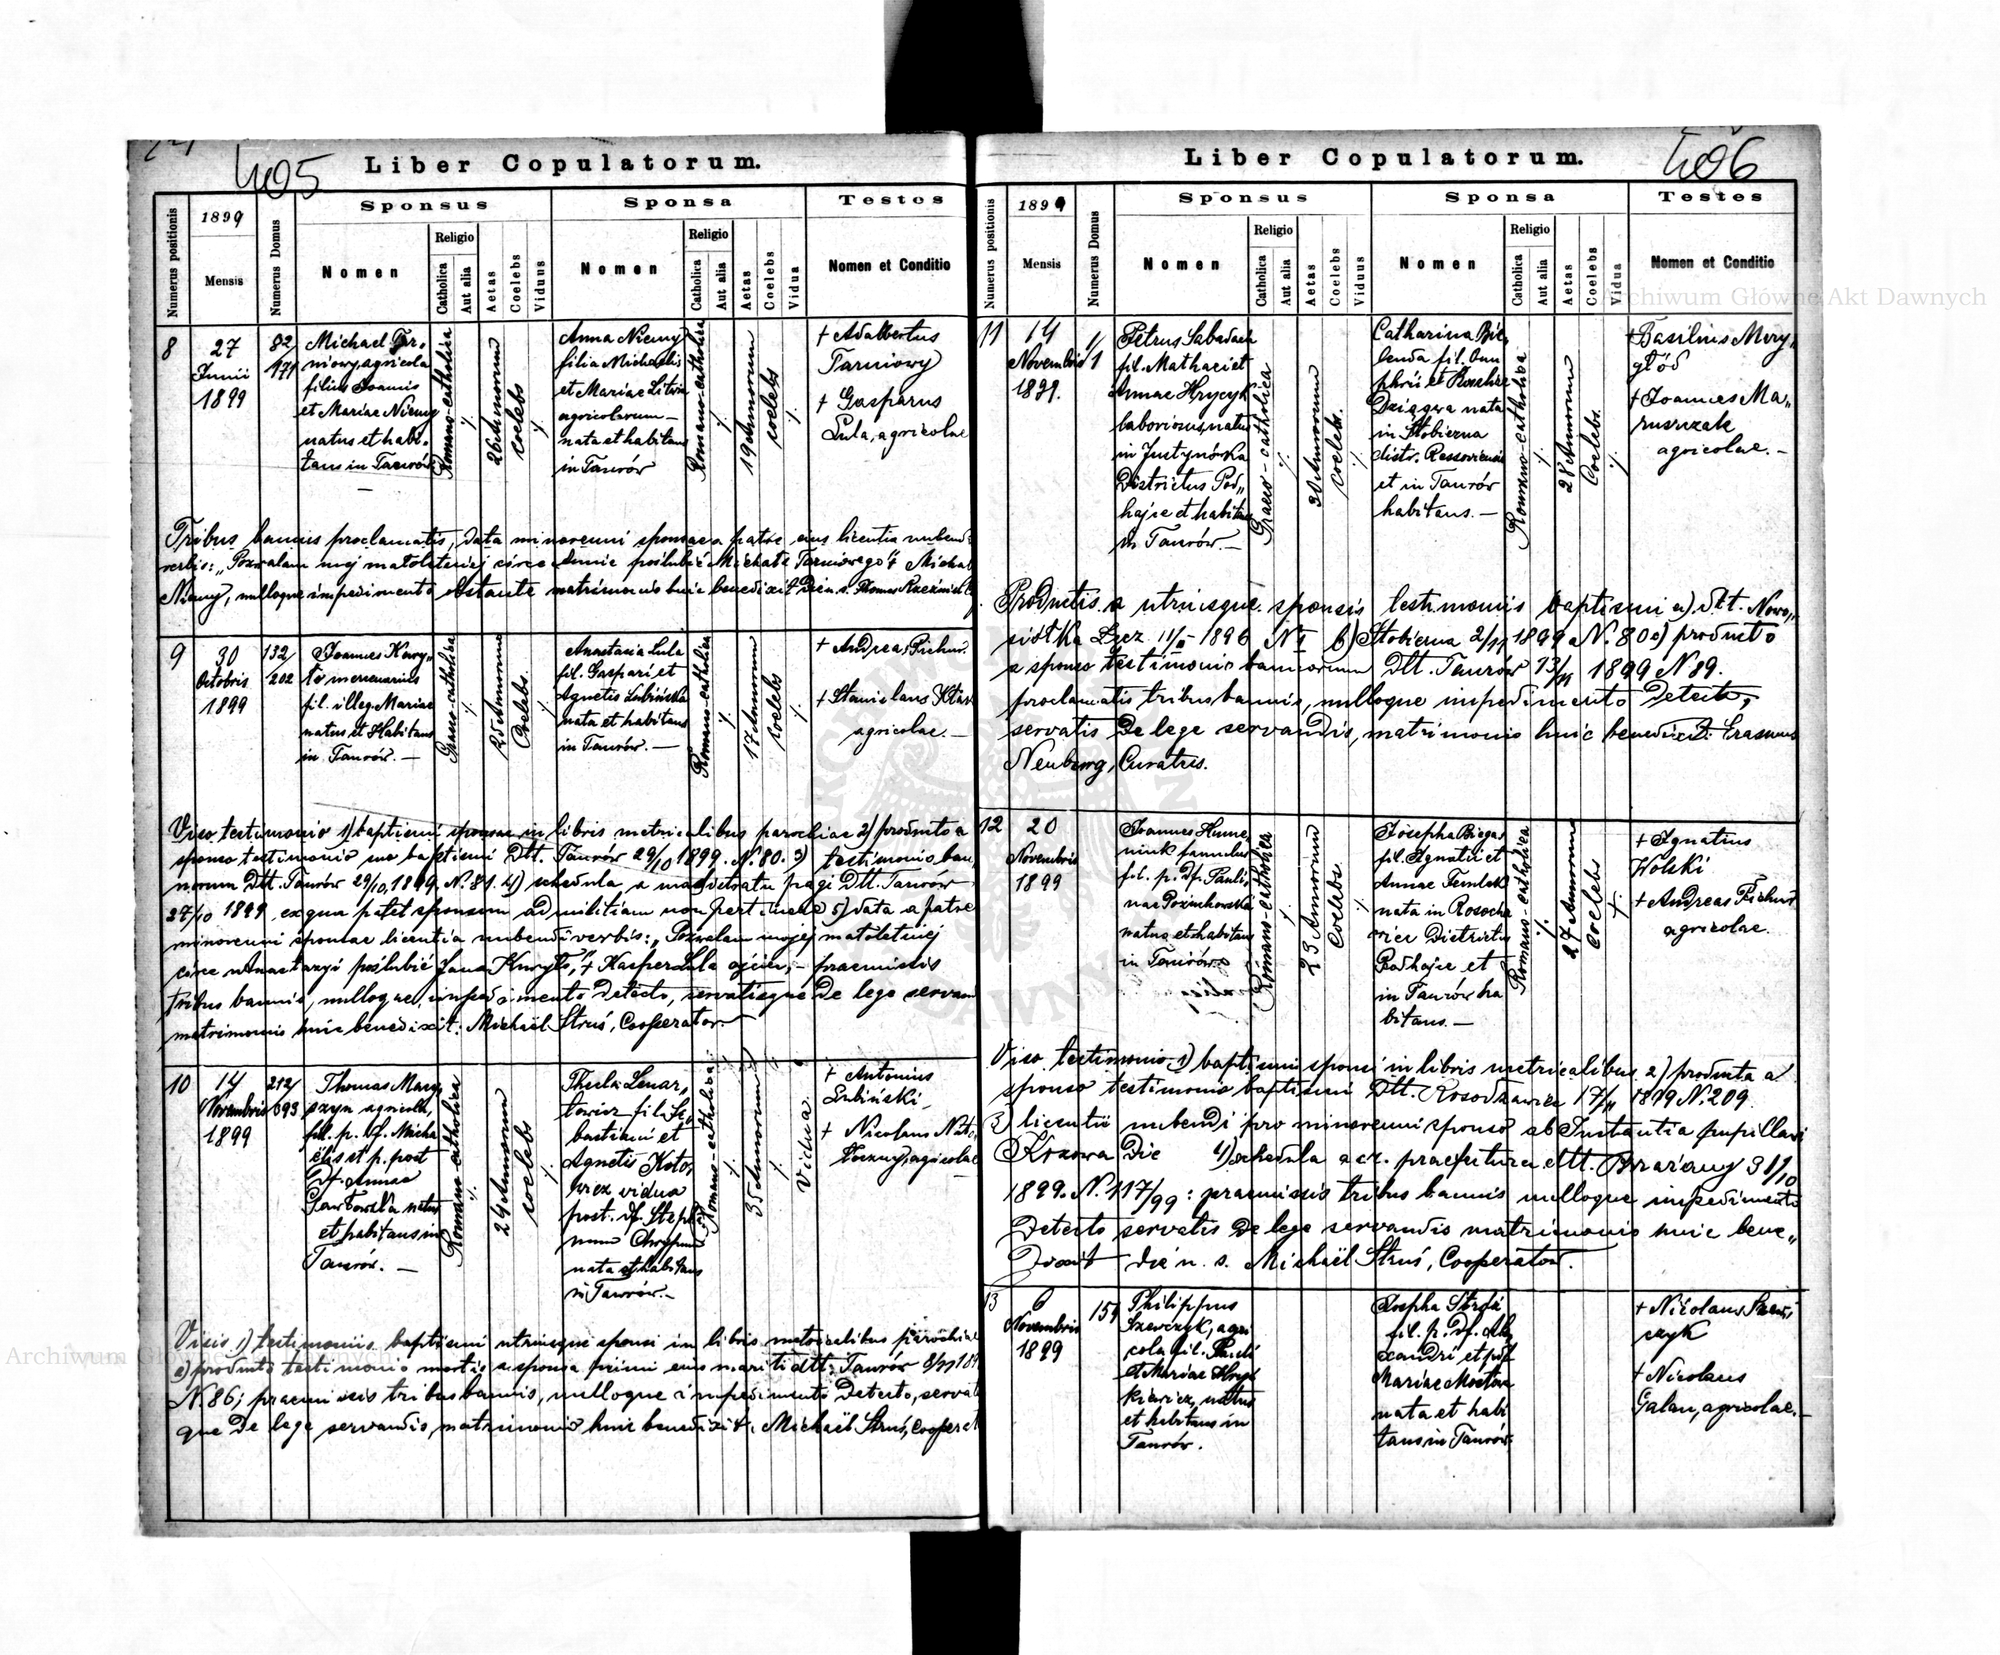 405
Liber Copulatorum.
Numerus positionis
1899
Mensis
Numerus Domus
Sponsus
Nomen
Religio
Catholica
Aut alia
Aetas
Coelebs
Viduus
Sponsa
Nomen
Religio
Catholica
Aut alia
Aetas
Coelebs
Vidua
Testes
Nomen et Conditio
8
27
Junii
1899
82/
171
Michael Tar-
niowy, agricola
filius Joannis
et Mariae Niemy
natus et habi-
tans in Taurów
Romano-catholica
26 Annorum
coelebs
Anna Niemy
filia Michaelis
et Mariae Litwin
agricolarum –
nata et habitans
in Taurów
Romano-catholica
19 Annorum
coelebs
† Adalbertus
Tarniowy
† Gasparus
Lula, agricolae
Tribus bannis proclamatis, data minorenni sponsae a patre eius licentia nubendi
verbis: „Pozwalam mej małoletniej córce Annie poślubić Michała Tarniowego" † Michał
Niemy, nulloque impedimento obstante matrimonio huic benedixit Die n. s. Thomas
9
30
Octobris
1899
132/
202
Joannes Kury„
ło mercenarius
fil. illeg. Mariae
natus et Habitans
in Taurów. –
Graeco-catholica
25 Annorum
Coelebs.
Anastasia Lula
fil. Gaspari et
Agnetis Lubińska
nata et habitans
in Taurów. –
Romano-catholica
17 Annorum
coelebs
† Andreas Pichur
† Stanislaus
agricolae. –
Viso testimonio 1) baptismi sponsae in libris metricalibus parochiae 2) producto a
sponso testimonio baptismi Dtt. Taurów 29/10 1899. N. 80. 3) testimonio ban„
norum Dtt. Taurów 29/10, 1899. N. 81. 4) schedula, a magistratu pagi Dtt. Taurów
27/10 1899, ex qua patet sponsum ad militiam non pertinere 5) data a patre
minorenni sponsae licentia nubendi verbis: „Pozwalam mojej małoletniej
córce Anastazyi poślubić Jana Kuryło," † Kasper Lula ojciec, – praemissis
tribus bannis, nulloque impedimento detecto, servatisque de lege servan
matrimonio huic benedixit. Michaël Struś, Cooperator. –
10
14
Novembris
1899
212/
393
Thomas Mary„
szyn agricola,
fil. p. df. Micha
ëlis et p. post
df. Annae
Pawłowska natus
et habitans in
Taurów. –
Romano-catholica
29 Annorum
coelebs
Thecla Lenar„
towicz fil. Se„
bastiani et
Agnetis Koto„
wicz vidua
post. df. Steph
num
nata et habitans
in Taurów. –
Romano-catholica
35 Annorum
Vidua.
† Antonius
Lubiński
† Nicolaus
agricolae
Visis 1) testimoniis baptismi utriusque sponsi in libris metricalibus parochiae
2) producto testimonio mortis a sponsa primi eius mariti dtt. Taurów
N. 86; praemissis tribus bannis, nulloque impedimento detecto, servatis
que de lege servandis, matrimonio huic benedixit. Michaël Struś, Cooperat
406
Liber Copulatorum.
Numerus positionis
1899
Mensis
Numerus Domus
Sponsus
Nomen
Religio
Catholica
Aut alia
Aetas
Coelebs
Viduus
Sponsa
Nomen
Religio
Catholica
Aut alia
Aetas
Coelebs
Vidua
Testes
Nomen et Conditio
11
14
Novembris
1899.
1/
1
Petrus
fil. Mathaei et
Annae Hrycyk
laboriosus, natus
in Justynówka
Districtus Pod„
hajce et habitans
in Taurów –
Graeco-catholica
Annorum
coelebs.
Catharina Bie
lenda fil. Onu
phrii et Rosaliae
Dziągwa nata
in Stobierna
distr. Ressoviensis
et in Taurów
habitans. –
Romano-catholica
28 Annorum
Coelebs.
† Basilius Mery„
głód
† Joannes Ma„
ruszczak
agricolae. –
Productis a utriusque sponsis testimoniis baptismi a) dtt. Nowo„
siółka 1896 N I b) Stobierna 2/11 1899 N. 80 c) producto
a sponso testimonio bannorum Dtt. Taurów 13/11 1899 N 89.
proclamatis tribus bannis, nulloque impedimento detecto,
servatis de lege servandis, matrimonio huic benedixit. Erasmus
Neuburg, Curatus.
12
20
Novembris
1899
Joannes Humen
niuk famulus
fil. p. df. Pauli,
natus et habitans
in Taurów
Romano-catholica
23 Annorum
Coelebs.
Josepha Biega,
fil. Ignatii et
Annae
nata in Rosocho
wice Districtus
Podhajce et
in Taurów ha
bitans. –
Romano-catholica
27 Annorum
coelebs
† Ignatius
Wolski
† Andreas Pichur
agricolae.
Viso testimonio 1) baptismi sponsi in libris metricalibus 2) producta a
sponso testimonio baptismi Dtt. 17/11 1899 N. 209.
3) licentii nubendi pro minorenni sponso ab Instantia pupillari
Kozowa Die 4) schedula a cr. praefectura dtt. Brzeżany 31/10
1899. N. 117/99: praemissis tribus bannis nulloque impedimento
Detecto servatis de lege servandis matrimonio huic bene„
dixit die n. s. Michaël Struś, Cooperator.
13
6
Novembris
1899
154
Philippus
Szewczyk, agri
cola fil. Pauli
et Mariae
natus
et habitans in
Taurów.
Josepha
fil. p. df. Ale
xandri et p. df
Mariae
nata et habi
tans in Taurów
† Nicolaus
czyk
† Nicolaus
Galan, agricolae. –
Archiwum Główne Akt Dawnych
Archiwum Główne Akt Dawnych